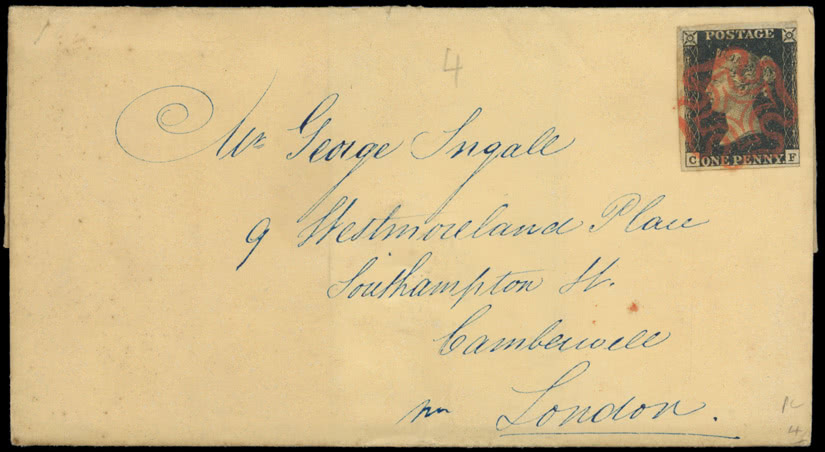 4
POSTAGE
Mr George Ingall
9 Westmoreland Place
Southampton St.
Camberwell
London.
C ONE PENNY F
4